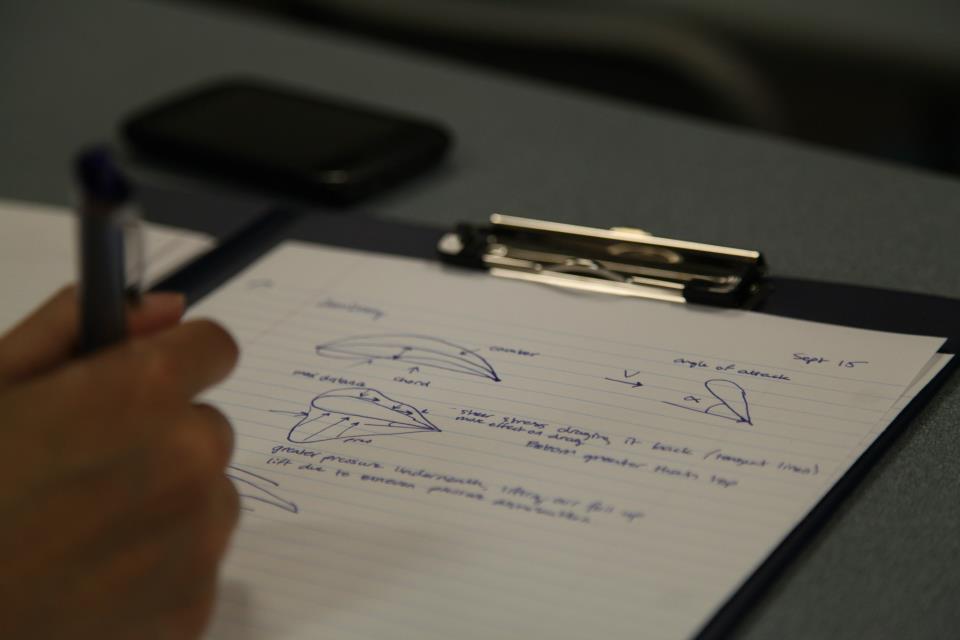 Sept 15
camber
angle of attack
V
chord
α
shear stress draging it back (tangent lines)
more effect on drag
Bottom greater than top
greater pressure underneath, lifting air foil up
lift due to uneven pressure distribution